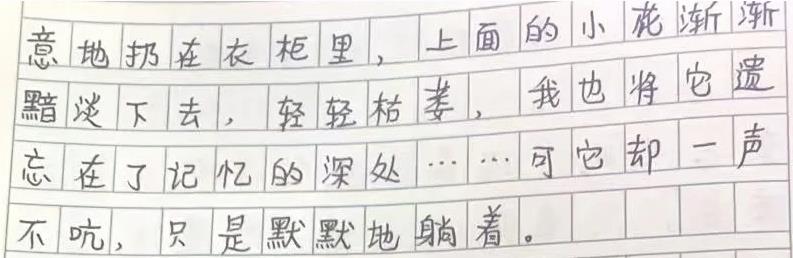 意地扔在衣柜里，上面的小花渐渐
黯淡下去，轻轻枯萎，我也将它遗
忘在了记忆的深处……可它却一声
不吭，只是默默地躺着。